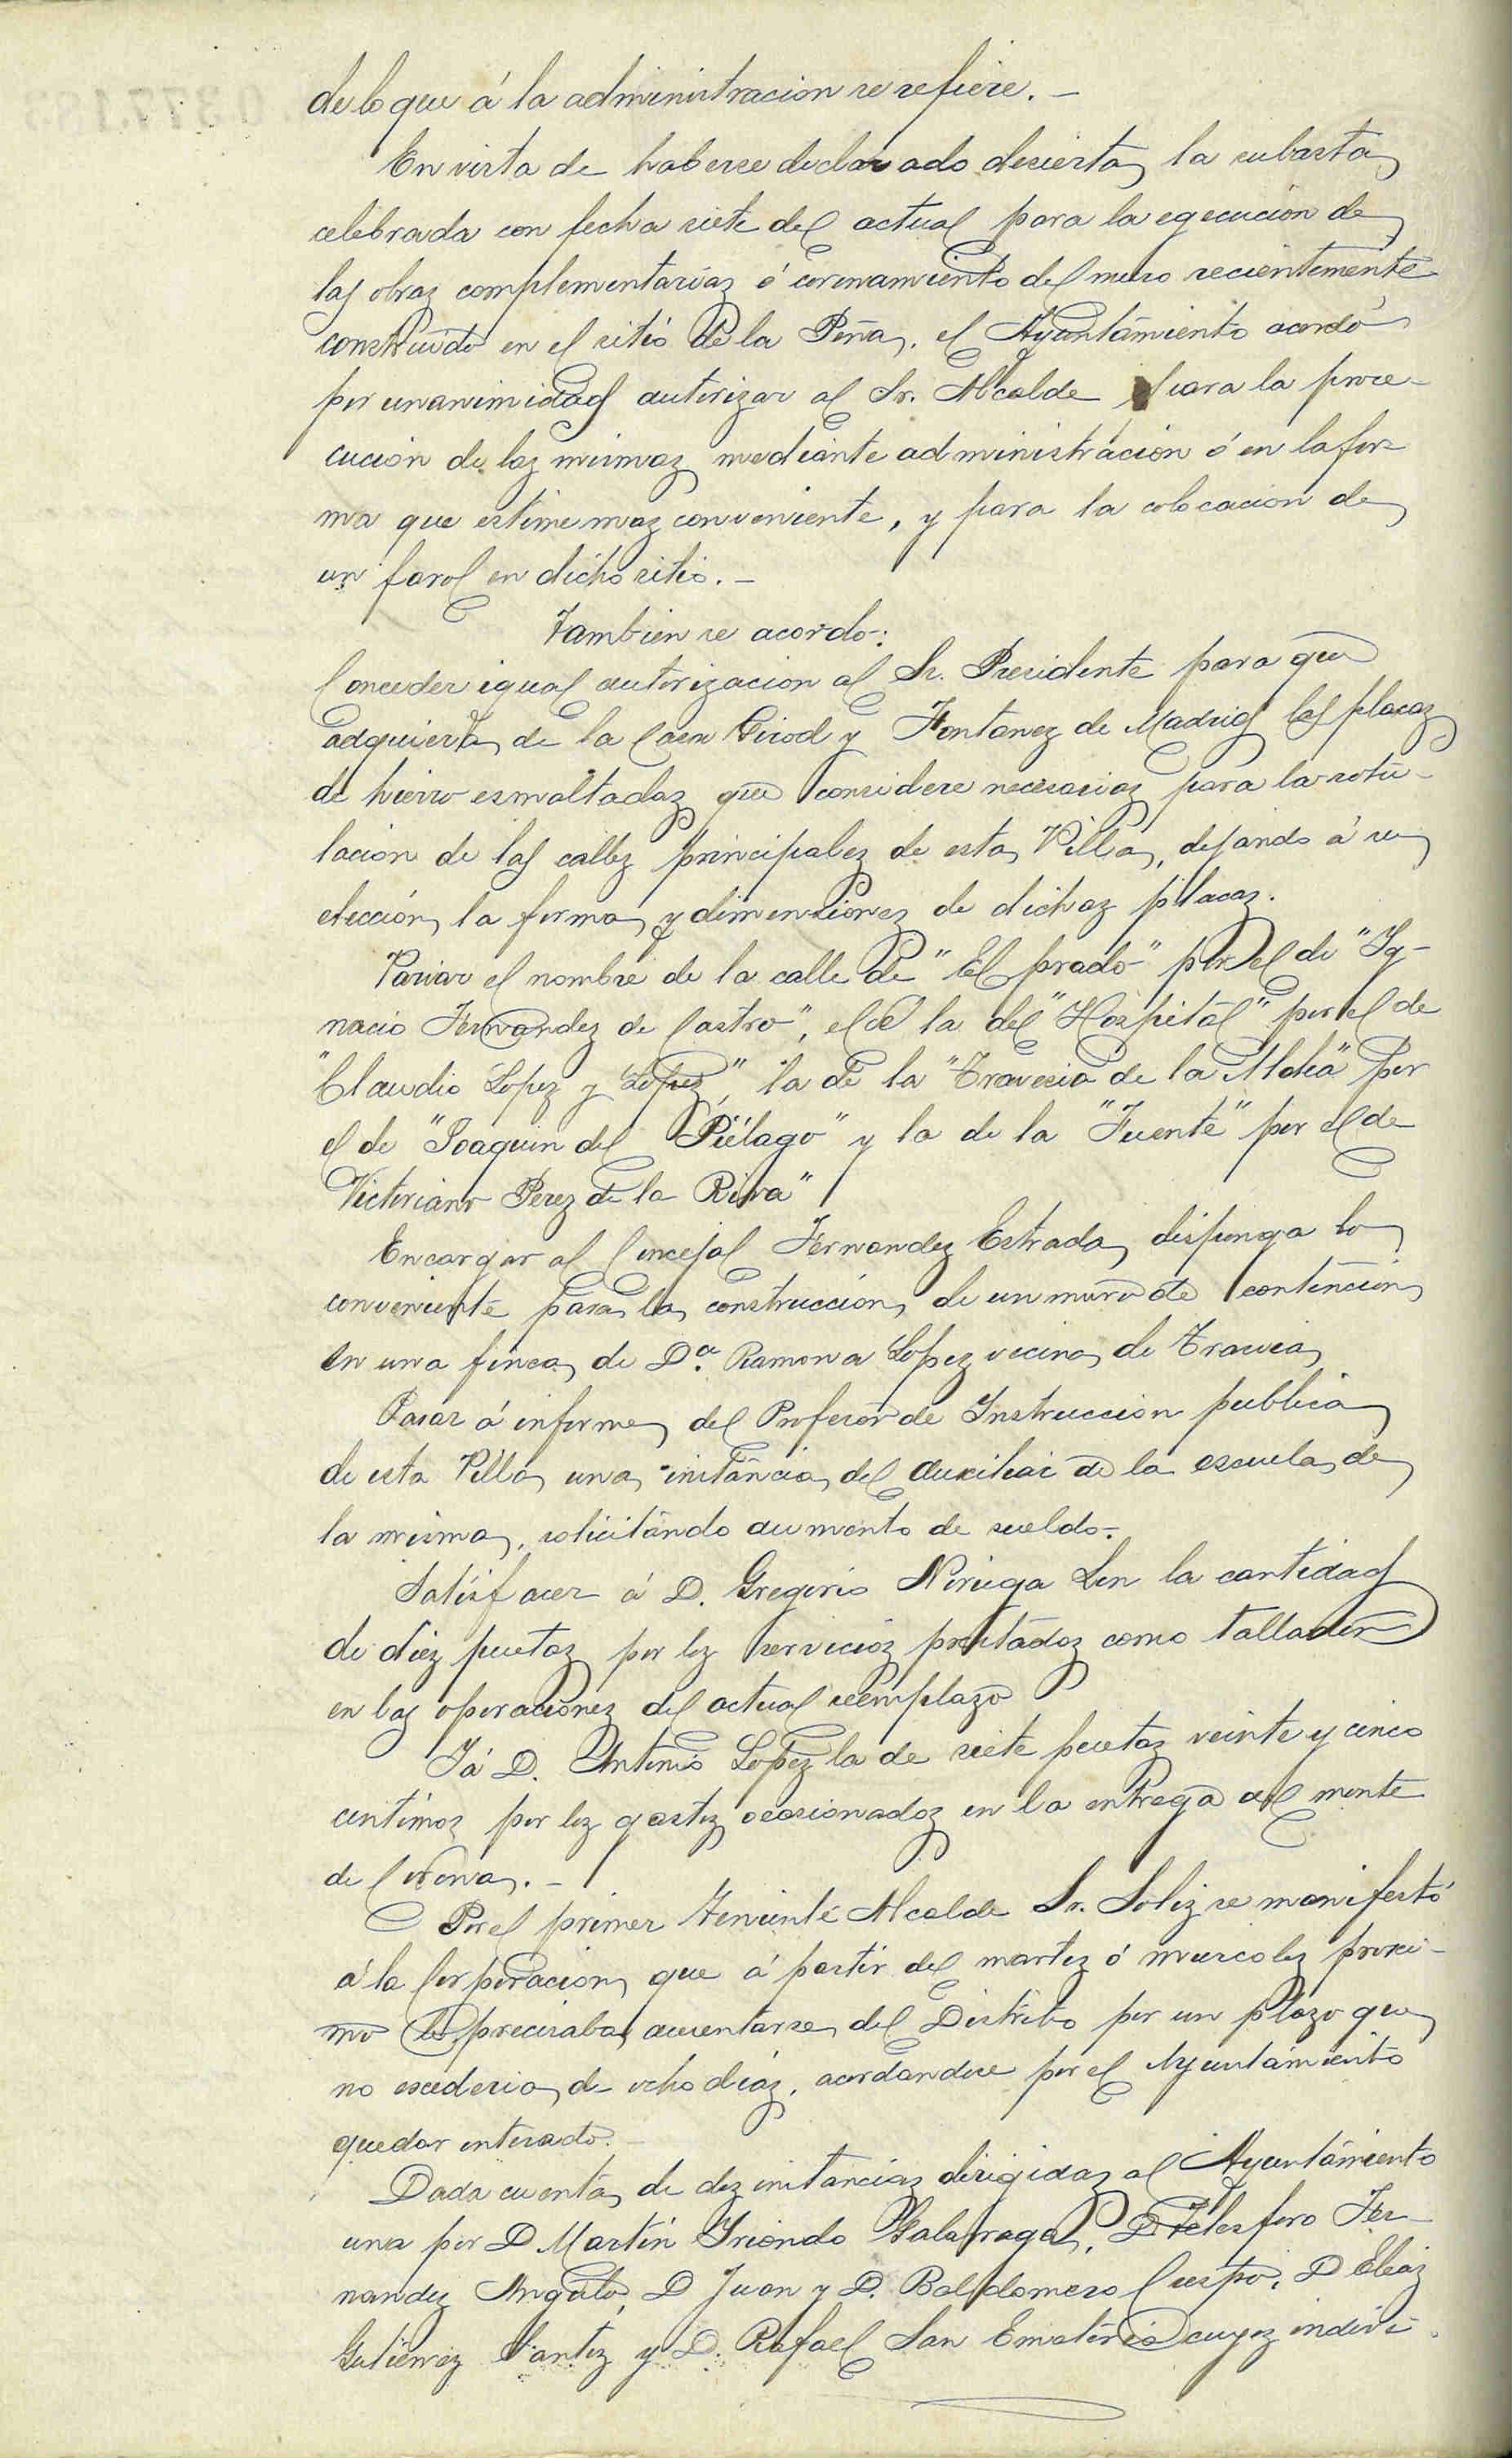 de lo que á la administracion se refiere. —
En vista de haberse declarado desierta la subasta
celebrada con fecha siete del actual para la egecución de
las obras complementarias ó coronamiento del muro recientemente
construido en el sitio de la Peña, el Ayuntamiento acordó
por unanimidad autorizar al Sr. Alcalde para la proce-
cución de las mismas mediante administración ó en la for-
ma que estime mas conveniente, y para la colocacion de
un farol en dicho sitio. —
Tambien se acordo:
Conceder igual autorizacion al Sr. Presidente para que
adquiera de la Casa Girod y Fontanez de Madrid las placas
de hierro esmaltadas que considere necesarias para la rotu-
lación de las calles principales de esta Villa, dejando á su
elección la forma y dimensiones de dichas placas.
Variar el nombre de la calle de "El prado" por el de "Ig-
nacio Fernandez de Castro", el de la del "Hospital" por el de
"Claudio Lopez y Lopez", la de la "Travesia de la Aldea" por
el de "Joaquin del Piélago" y la de la "Fuente" por el de
Victoriano Perez de la Riva"
Encargar al Concejal Fernandez Estrada, disponga lo
conveniente para la construcción de un muro de contención
en una finca de Dª. Ramona Lopez vecina de
Pasar á informe del Profesor de Instruccion publica
de esta Villa una instancia del auxiliar de la escuela de
la misma, solicitando aumento de sueldo.
Satisfacer á D. Gregorio Noriega Lon la cantidad
de diez pesetas por los servicios prestados como tallador
en las operaciones del actual reemplazo
Y á D. Antonio Lopez la de siete pesetas veinte y cinco
centimos por los gastos ocasionados en la entrega del monte
de Corona. —
Por el primer Teniente Alcalde Sr. Soliz se manifestó
á la Corporacion que á partir del martes ó miercoles proxi-
mo precisaba ausentarse del Distrito por un plazo que
no escederia de ocho dias, acordandose por el Ayuntamiento
quedar enterado. —
Dada cuenta de dos instancias dirigidas al Ayuntamiento
una por D Martín Yriondo Galarraga, D Telesforo Fer-
nandez Angulo, D Juan y D. Baldomero Crespo, D Elias
Gutierrez Santos y D. Rafael San Emeterio cuyos indivi-